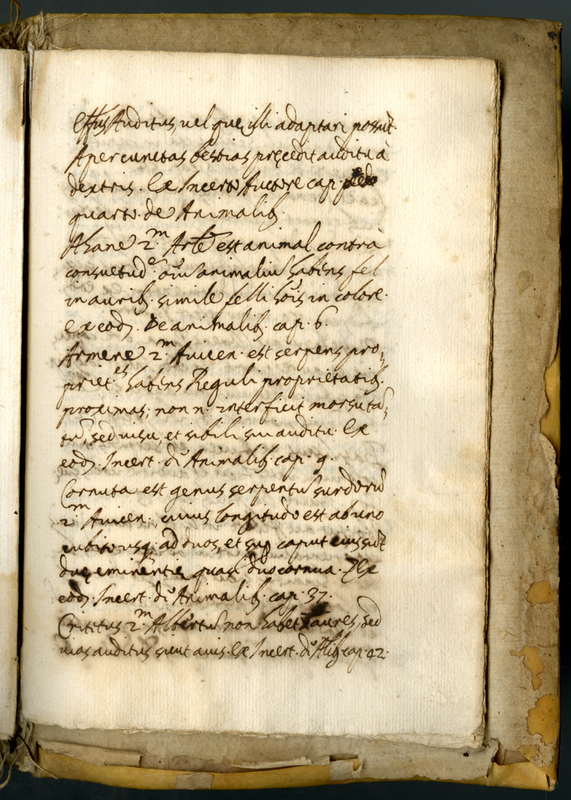 Auditus, vel que illi adaptari possūt.
Aper cunctas bestias precedit auditu à
dextris. Ex Incerto Auctore cap.
quarto. de Animalib.
Ahane 2.m Arte est animal contrà
consuetud.em oīu animaliu habens fel
in aurib. simile felli hois in colore.
ex eod. De animalib. cap. 6.
Armene 2.m Auicen. est serpens pro-
priet.es habens Reguli proprietatib.
proximas; non n. interficit morsu ta-
tu, sed uisu, et sibili sui auditu. Ex
eod. Incert. d. Animalib. cap. 9.
Cornuta est genus serpentū surdorū
2.m Auicen. cuius longitudo est ab uno
cubito usq. ad duos, et sup caput eius sūt
due eminentie quasi duo cornua. Ex
eod. Incert. d. Animalib. cap. 37.
2.m Albertū non habet aures, sed
uias auditus sicut auis. Ex Incert. d. Alib. cap. 42.